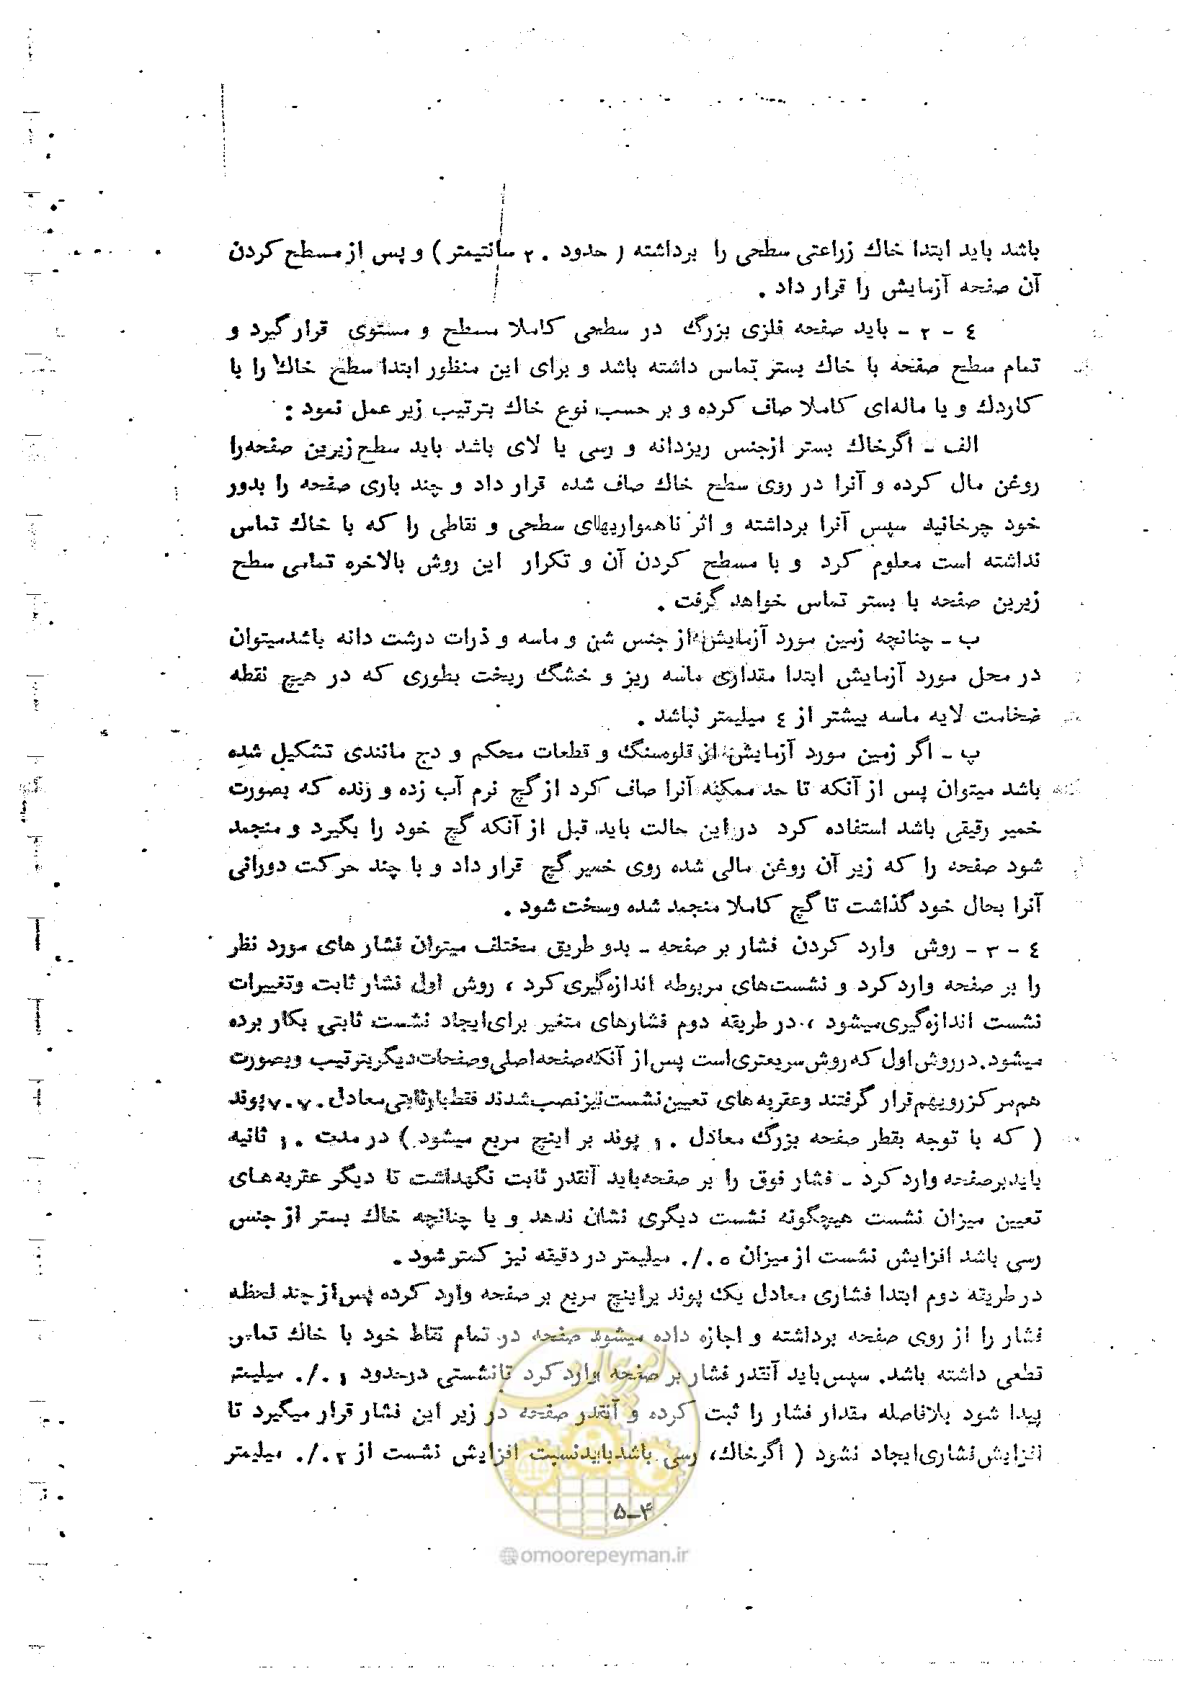 باشد باید ابتدا خاك زراعتی سطحی را برداشته ( حدود ۲۰ سانتیمتر ) و پس از مسطح کردن
آن صفحه آزمایش را قرار داد .
٤ - ۲ - باید صفحه فلزی بزرگ در سطحی کاملا مسطح و مستوی قرار گیرد و
تمام سطح صفحه با خاك بستر تماس داشته باشد و برای این منظور ابتدا سطح خاك را با
کاردك و یا ماله‌ای کاملا صاف کرده و بر حسب نوع خاك بترتیب زیر عمل نمود :
الف - اگرخاك بستر ازجنس ریزدانه و رسی یا لای باشد باید سطح زیرین صفحه‌را
روغن مال کرده و آنرا در روی سطح خاك صاف شده قرار داد و چند باری صفحه را بدور
خود چرخانید سپس آنرا برداشته و اثر ناهمواریهای سطحی و نقاطی را که با خاك تماس
نداشته است معلوم کرد و با مسطح کردن آن و تکرار این روش بالاخره تمامی سطح
زیرین صفحه با بستر تماس خواهد گرفت .
ب - چنانچه زمین مورد آزمایش از جنس شن و ماسه و ذرات درشت دانه باشدمیتوان
در محل مورد آزمایش ابتدا مقداری ماسه ریز و خشگ ریخت بطوری که در هیچ نقطه
ضخامت لایه ماسه بیشتر از ٤ میلیمتر نباشد .
پ - اگر زمین مورد آزمایش از قلوه‌سنگ و قطعات محکم و دج مانندی تشکیل شده
باشد میتوان پس از آنکه تا حد ممکنه آنرا صاف کرد از گچ نرم آب زده و زنده که بصورت
خمیر رقیقی باشد استفاده کرد در این حالت باید قبل از آنکه گچ خود را بگیرد و منجمد
شود صفحه را که زیر آن روغن مالی شده روی خمیر گچ قرار داد و با چند حرکت دورانی
آنرا بحال خود گذاشت تا گچ کاملا منجمد شده وسخت شود .
٤ - ۳ - روش وارد کردن فشار بر صفحه - بدو طریق مختلف میتوان فشار های مورد نظر
را بر صفحه وارد کرد و نشست‌های مربوطه اندازه‌گیری کرد ، روش اول فشار ثابت وتغییرات
نشست اندازه‌گیری میشود ، در طریقه دوم فشارهای متغیر برای ایجاد نشست ثابتی بکار برده
میشود. در روش اول که روش سریعتری است پس از آنکه صفحه اصلی و صفحات دیگر بترتیب و بصورت
هم‌مرکز رویهم قرار گرفتند و عقربه های تعیین نشست نیز نصب شدند فقط بار ثابتی معادل ۷۰۷۰ پوند
( که با توجه بقطر صفحه بزرگ معادل ۱۰ پوند بر اینچ مربع میشود ) در مدت ۱۰ ثانیه
باید برصفحه وارد کرد - فشار فوق را بر صفحه باید آنقدر ثابت نگهداشت تا دیگر عقربه‌های
تعیین میزان نشست هیچگونه نشست دیگری نشان ندهد و یا چنانچه خاك بستر از جنس
رسی باشد افزایش نشست از میزان ۰/۰٥ میلیمتر در دقیقه نیز کمتر شود .
در طریقه دوم ابتدا فشاری معادل یك پوند براینچ مربع بر صفحه وارد کرده پس از چند لحظه
فشار را از روی صفحه برداشته و اجازه داده میشود صفحه در تمام نقاط خود با خاك تماس
قطعی داشته باشد. سپس باید آنقدر فشار بر صفحه وارد کرد تا نشستی درحدود ۰/۰۱ میلیمتر
پیدا شود بلافاصله مقدار فشار را ثبت کرده و آنقدر صفحه در زیر این فشار قرار میگیرد تا
افزایش فشاری ایجاد نشود ( اگرخاك، رسی باشد باید نسبت افزایش نشست از ۰/۰۲ میلیمتر
۵-۴
@omoorepeyman.ir